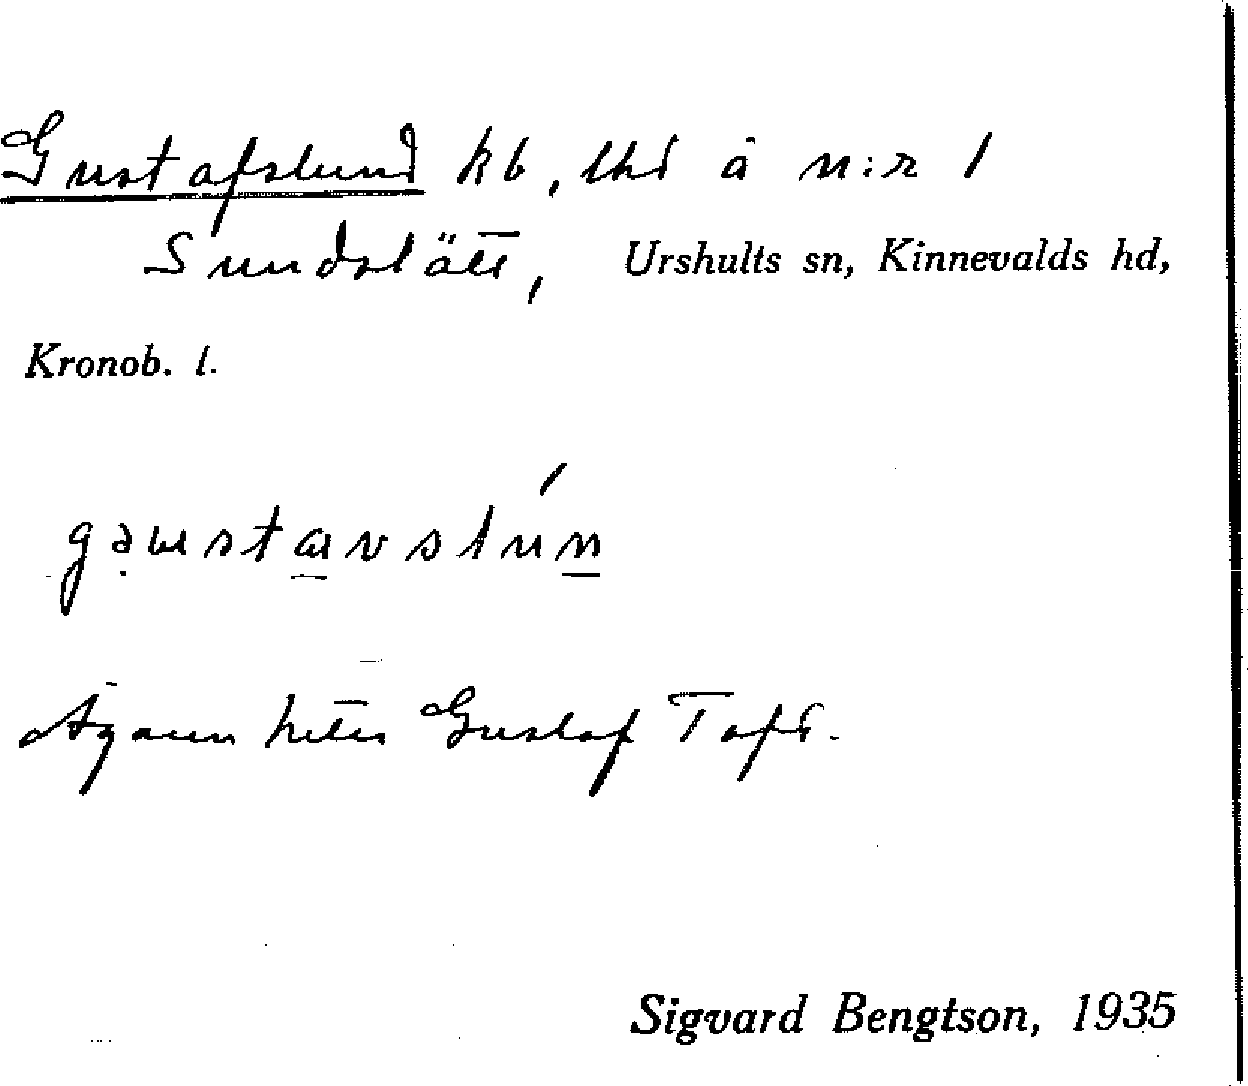 Gustafslund kb, lhd å n:r 1
Sundslätt, Urshults sn, Kinnevalds hd,
Kronob. l.
Ägaren heter Gustaf
Sigvard Bengtson, 1935